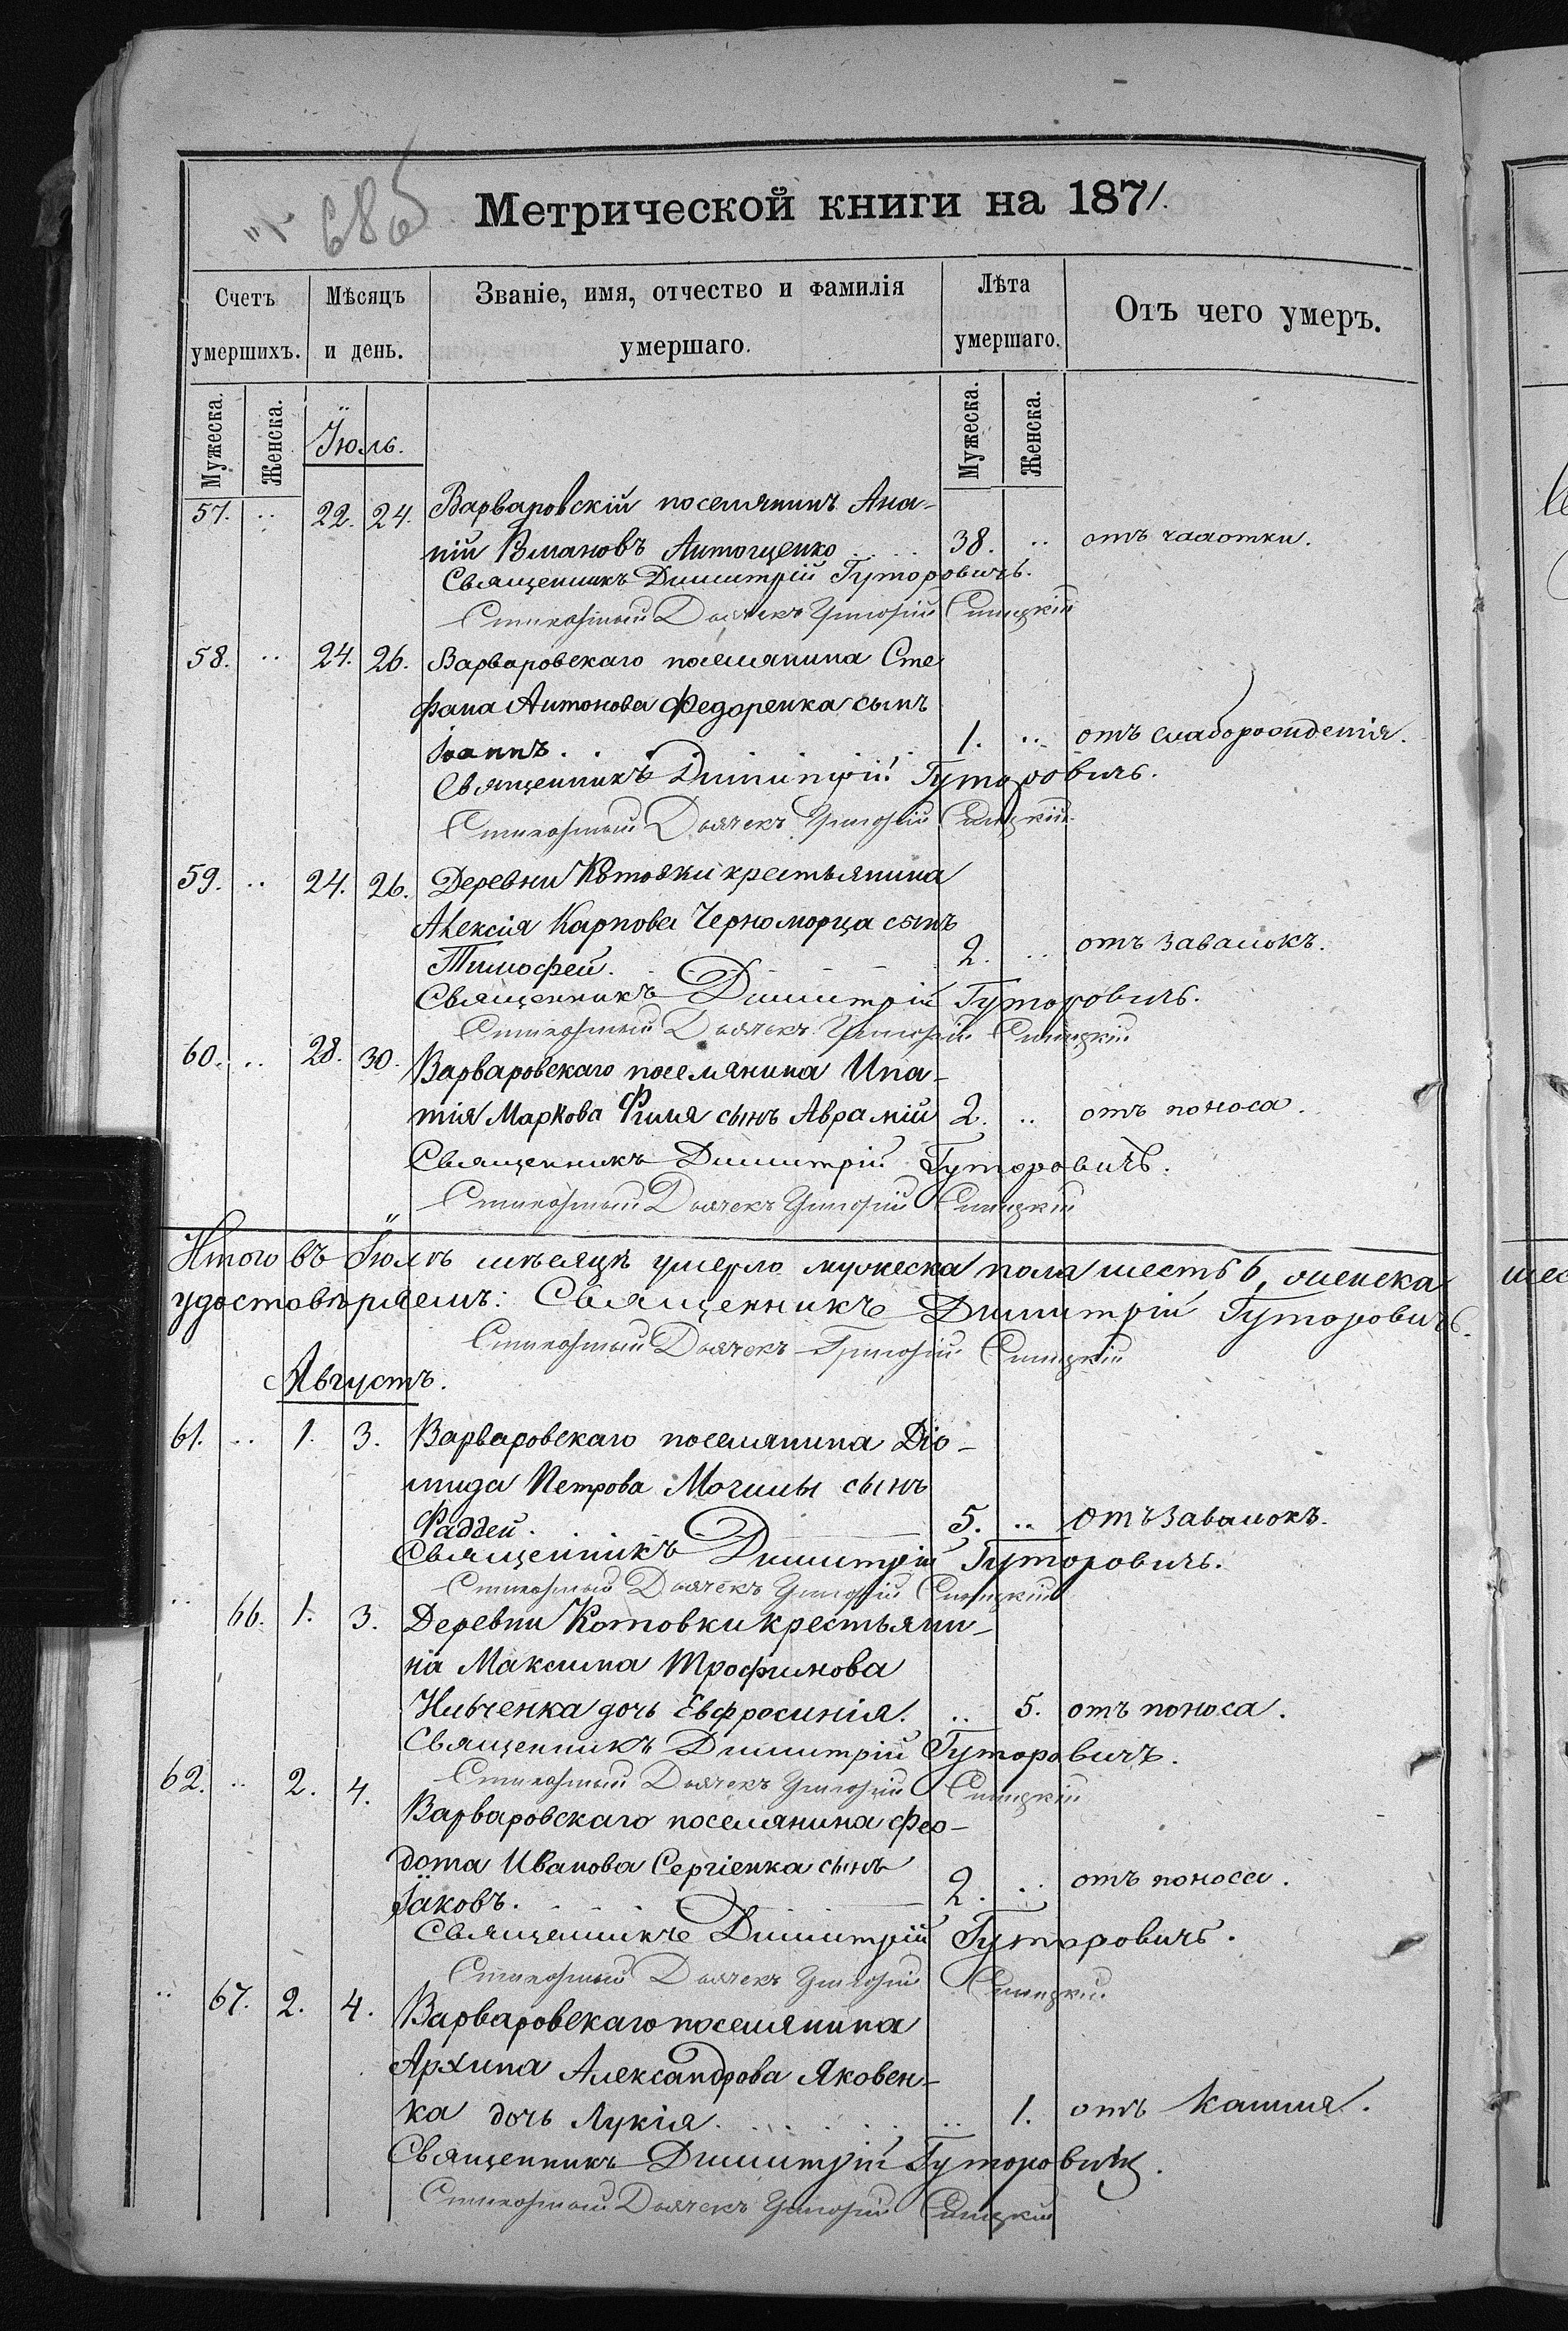 68об
Метрической книги на 1871.
Счетъ умершихъ.
Мѣсяцъ и день.
Званіе, имя, отчество и фамилія умершаго.
Лѣта умершаго.
Отъ чего умеръ.
Мужеска.
Женска.
Мужеска.
Женска.
Іюль.
57. .. 22. 24. Варваровскій поселянинъ Ана-
ній Антощенко 38. .. отъ чахотки.
Священникъ Димитрій Гуторовичъ.
Стихарный Дьячекъ Григорій
58. .. 24. 26. Варваровскаго поселянина Сте
фана Антонова Федоренка сынъ
Іоаннъ. 1. .. отъ слаборожденія.
Священникъ Димитрій Гуторовичъ.
Стихарный Дьячекъ Григорій
59. .. 24. 26. Деревни Котовки крестьянина
Алексія Карпова Черноморца сынъ
Тимофей. 2. .. отъ завалокъ.
Священникъ Димитрій Гуторовичъ.
Стихарный Дьячекъ Григорій
60. .. 28. 30. Варваровскаго поселянина Ипа-
тія Маркова сынъ Аврамій 2. .. отъ поноса.
Священникъ Димитрій Гуторовичъ.
Стихарный Дьячекъ Григорій
Итого въ Іюлѣ мѣсяцѣ умерло мужеска пола шесть 6, женска
удостовѣряемъ: Священникъ Димитрій Гуторовичъ.
Стихарный Дьячекъ Григорій
Августъ.
61. .. 1. 3. Варваровскаго поселянина Діо-
мида Петрова Могилы сынъ
Фаддей. 5. .. отъ завалокъ.
Священникъ Димитрій Гуторовичъ.
Стихарный Дьячекъ Григорій
.. 66. 1. 3. Деревни Котовки крестьяни-
на Максима Трофимова
дочь Евфросинія. .. 5. отъ поноса.
Священникъ Димитрій Гуторовичъ.
Стихарный Дьячекъ Григорій
62. .. 2. 4. Варваровскаго поселянина Фео-
дота Иванова Сергіенка сынъ
Іаковъ. 2. .. отъ поноса.
Священникъ Димитрій Гуторовичъ.
Стихарный Дьячекъ Григорій
.. 67. 2. 4. Варваровскаго поселянина
Архипа Александрова Яковен-
ка дочь Лукія. .. 1. отъ кашля.
Священникъ Димитрій Гуторовичъ.
Стихарный Дьячекъ Григорій